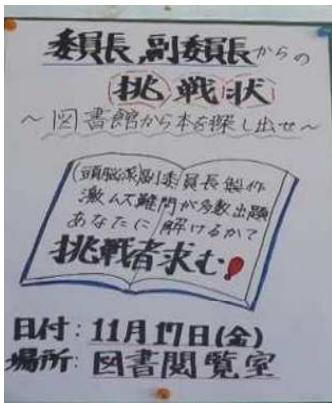 委員長,副委員長からの
挑戦状
〜図書館から本を探し出せ〜
(頭脳派)副委員長製作
激ムズ難問が多数出題
あなたに解けるか?
挑戦者求む!
日付:11月17日(金)
場所:図書閲覧室